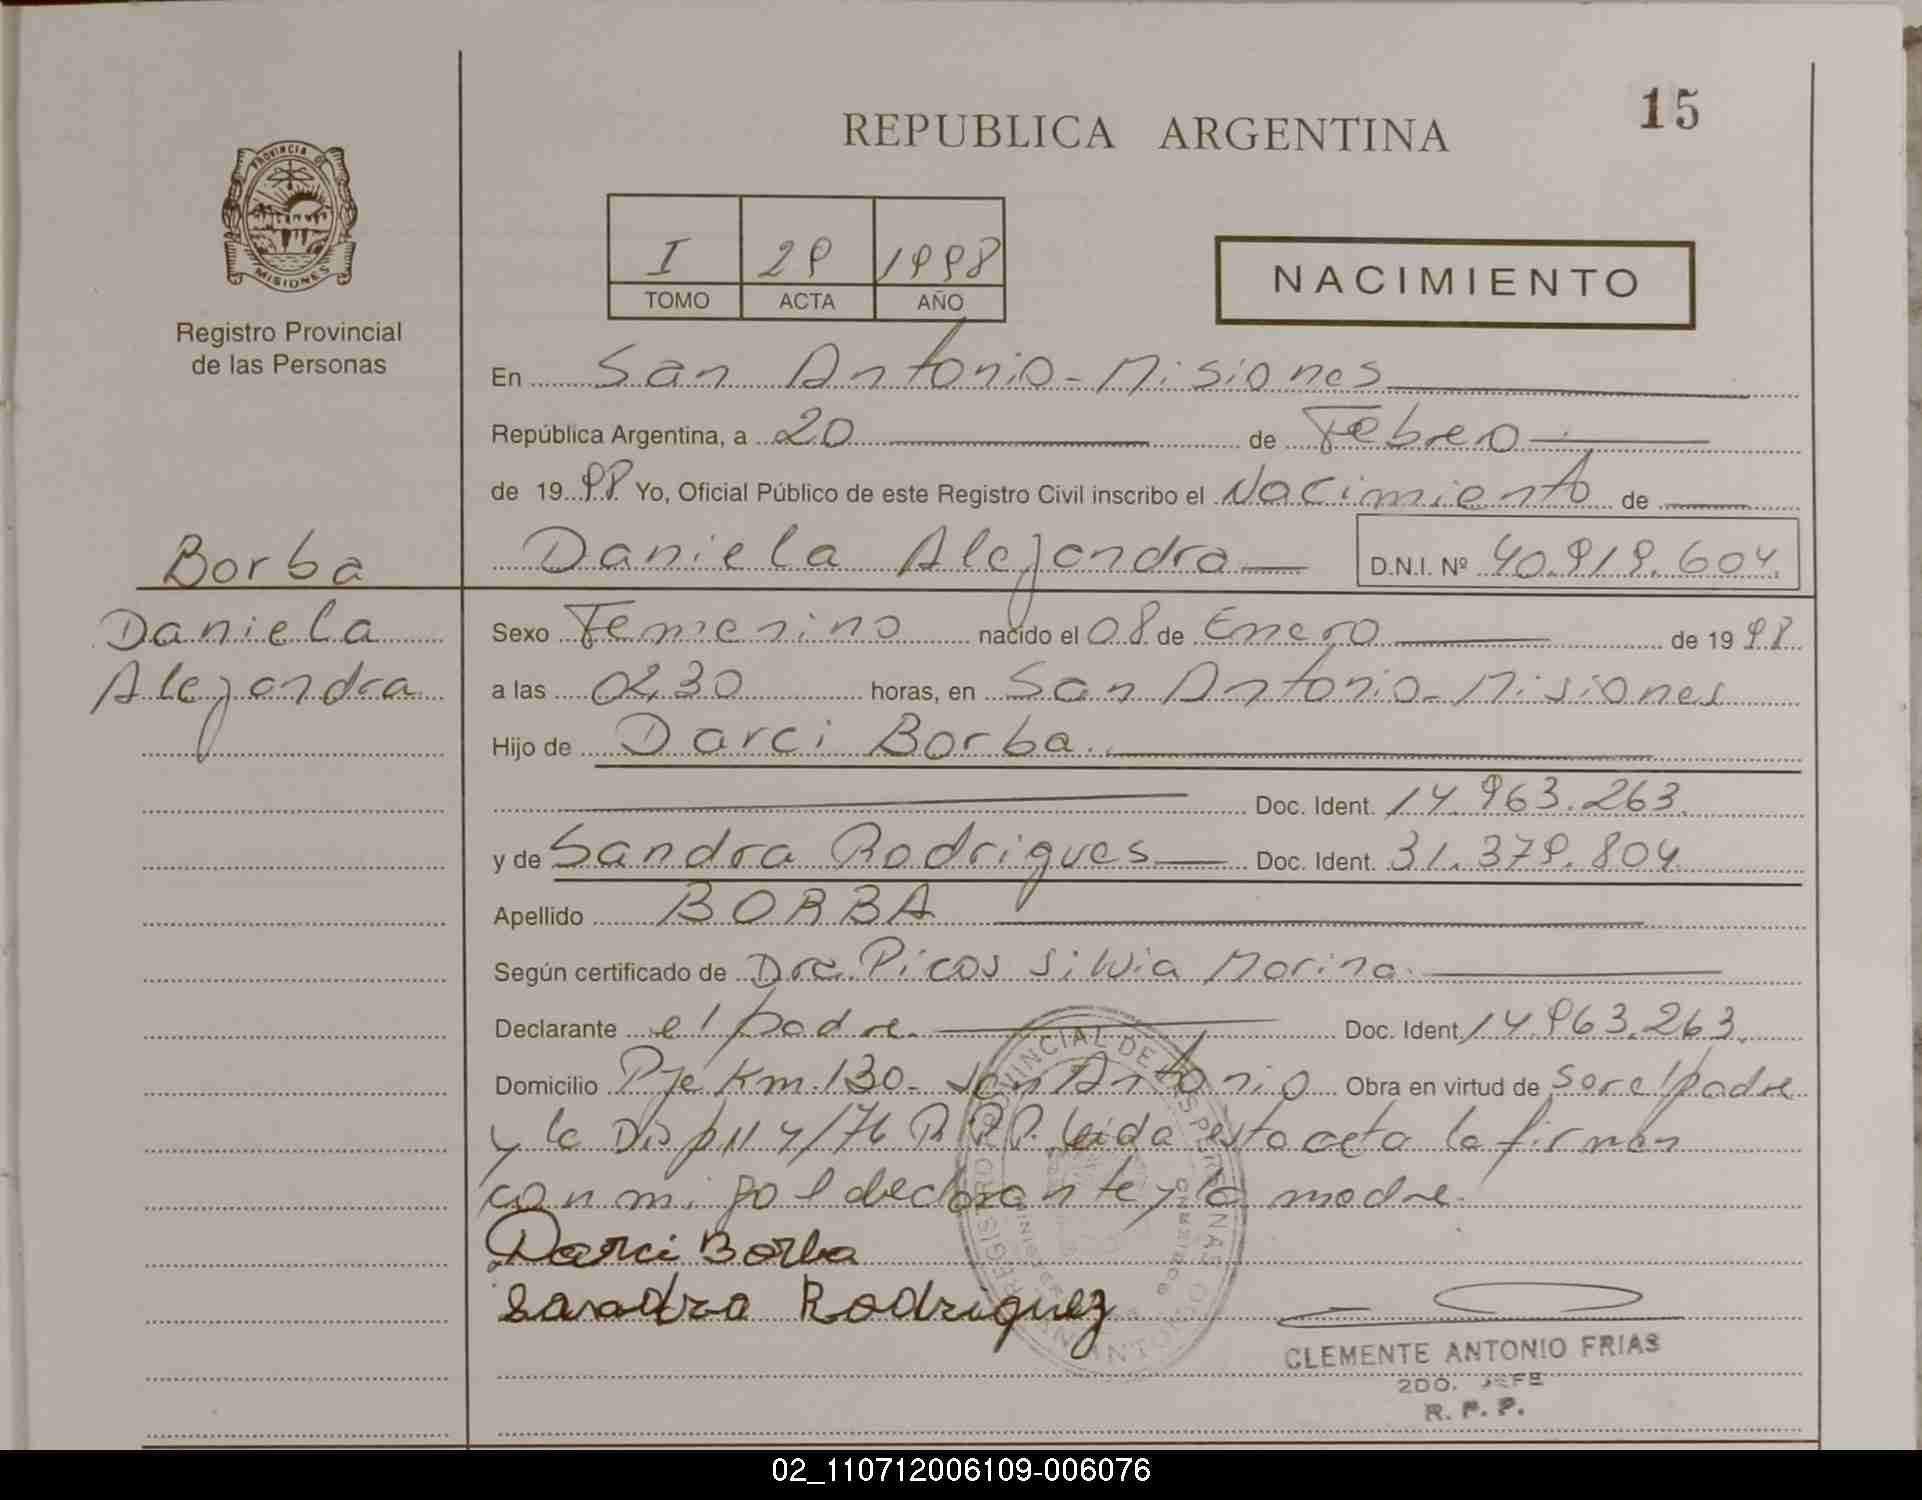 15
REPUBLICA ARGENTINA
PROVINCIA DE
MISIONES
Registro Provincial
de las Personas
I 29 1998
TOMO ACTA AÑO
NACIMIENTO
En San Antonio - Misiones
República Argentina, a 20 de Febrero
de 1998 Yo, Oficial Público de este Registro Civil inscribo el Nacimiento de
Borba
Daniela Alejandra D.N.I. Nº 40.919.604.
Daniela
Alejandra
Sexo Femenino nacido el 08 de Enero de 1998
a las 02,30 horas, en San Antonio - Misiones
Hijo de Darci Borba.
Doc. Ident. 14.963.263.
y de Sandra Rodrigues Doc. Ident. 31.379.804
Apellido BORBA
Según certificado de Dra. Picos Silvia Marina.
Declarante el padre. Doc. Ident. 14.963.263.
Domicilio Pje Km. 130 - San Antonio Obra en virtud de ser el padre
y la Disp N 4/76 R.P.P. Leida esta acta la firman
conmigo el declarante y la madre.
Darci Borba
Sandra Rodriguez
REGISTRO PROVINCIAL DE LAS PERSONAS
SAN ANTONIO
CLEMENTE ANTONIO FRIAS
2DO. JEFE
R. P. P.
02_110712006109-006076